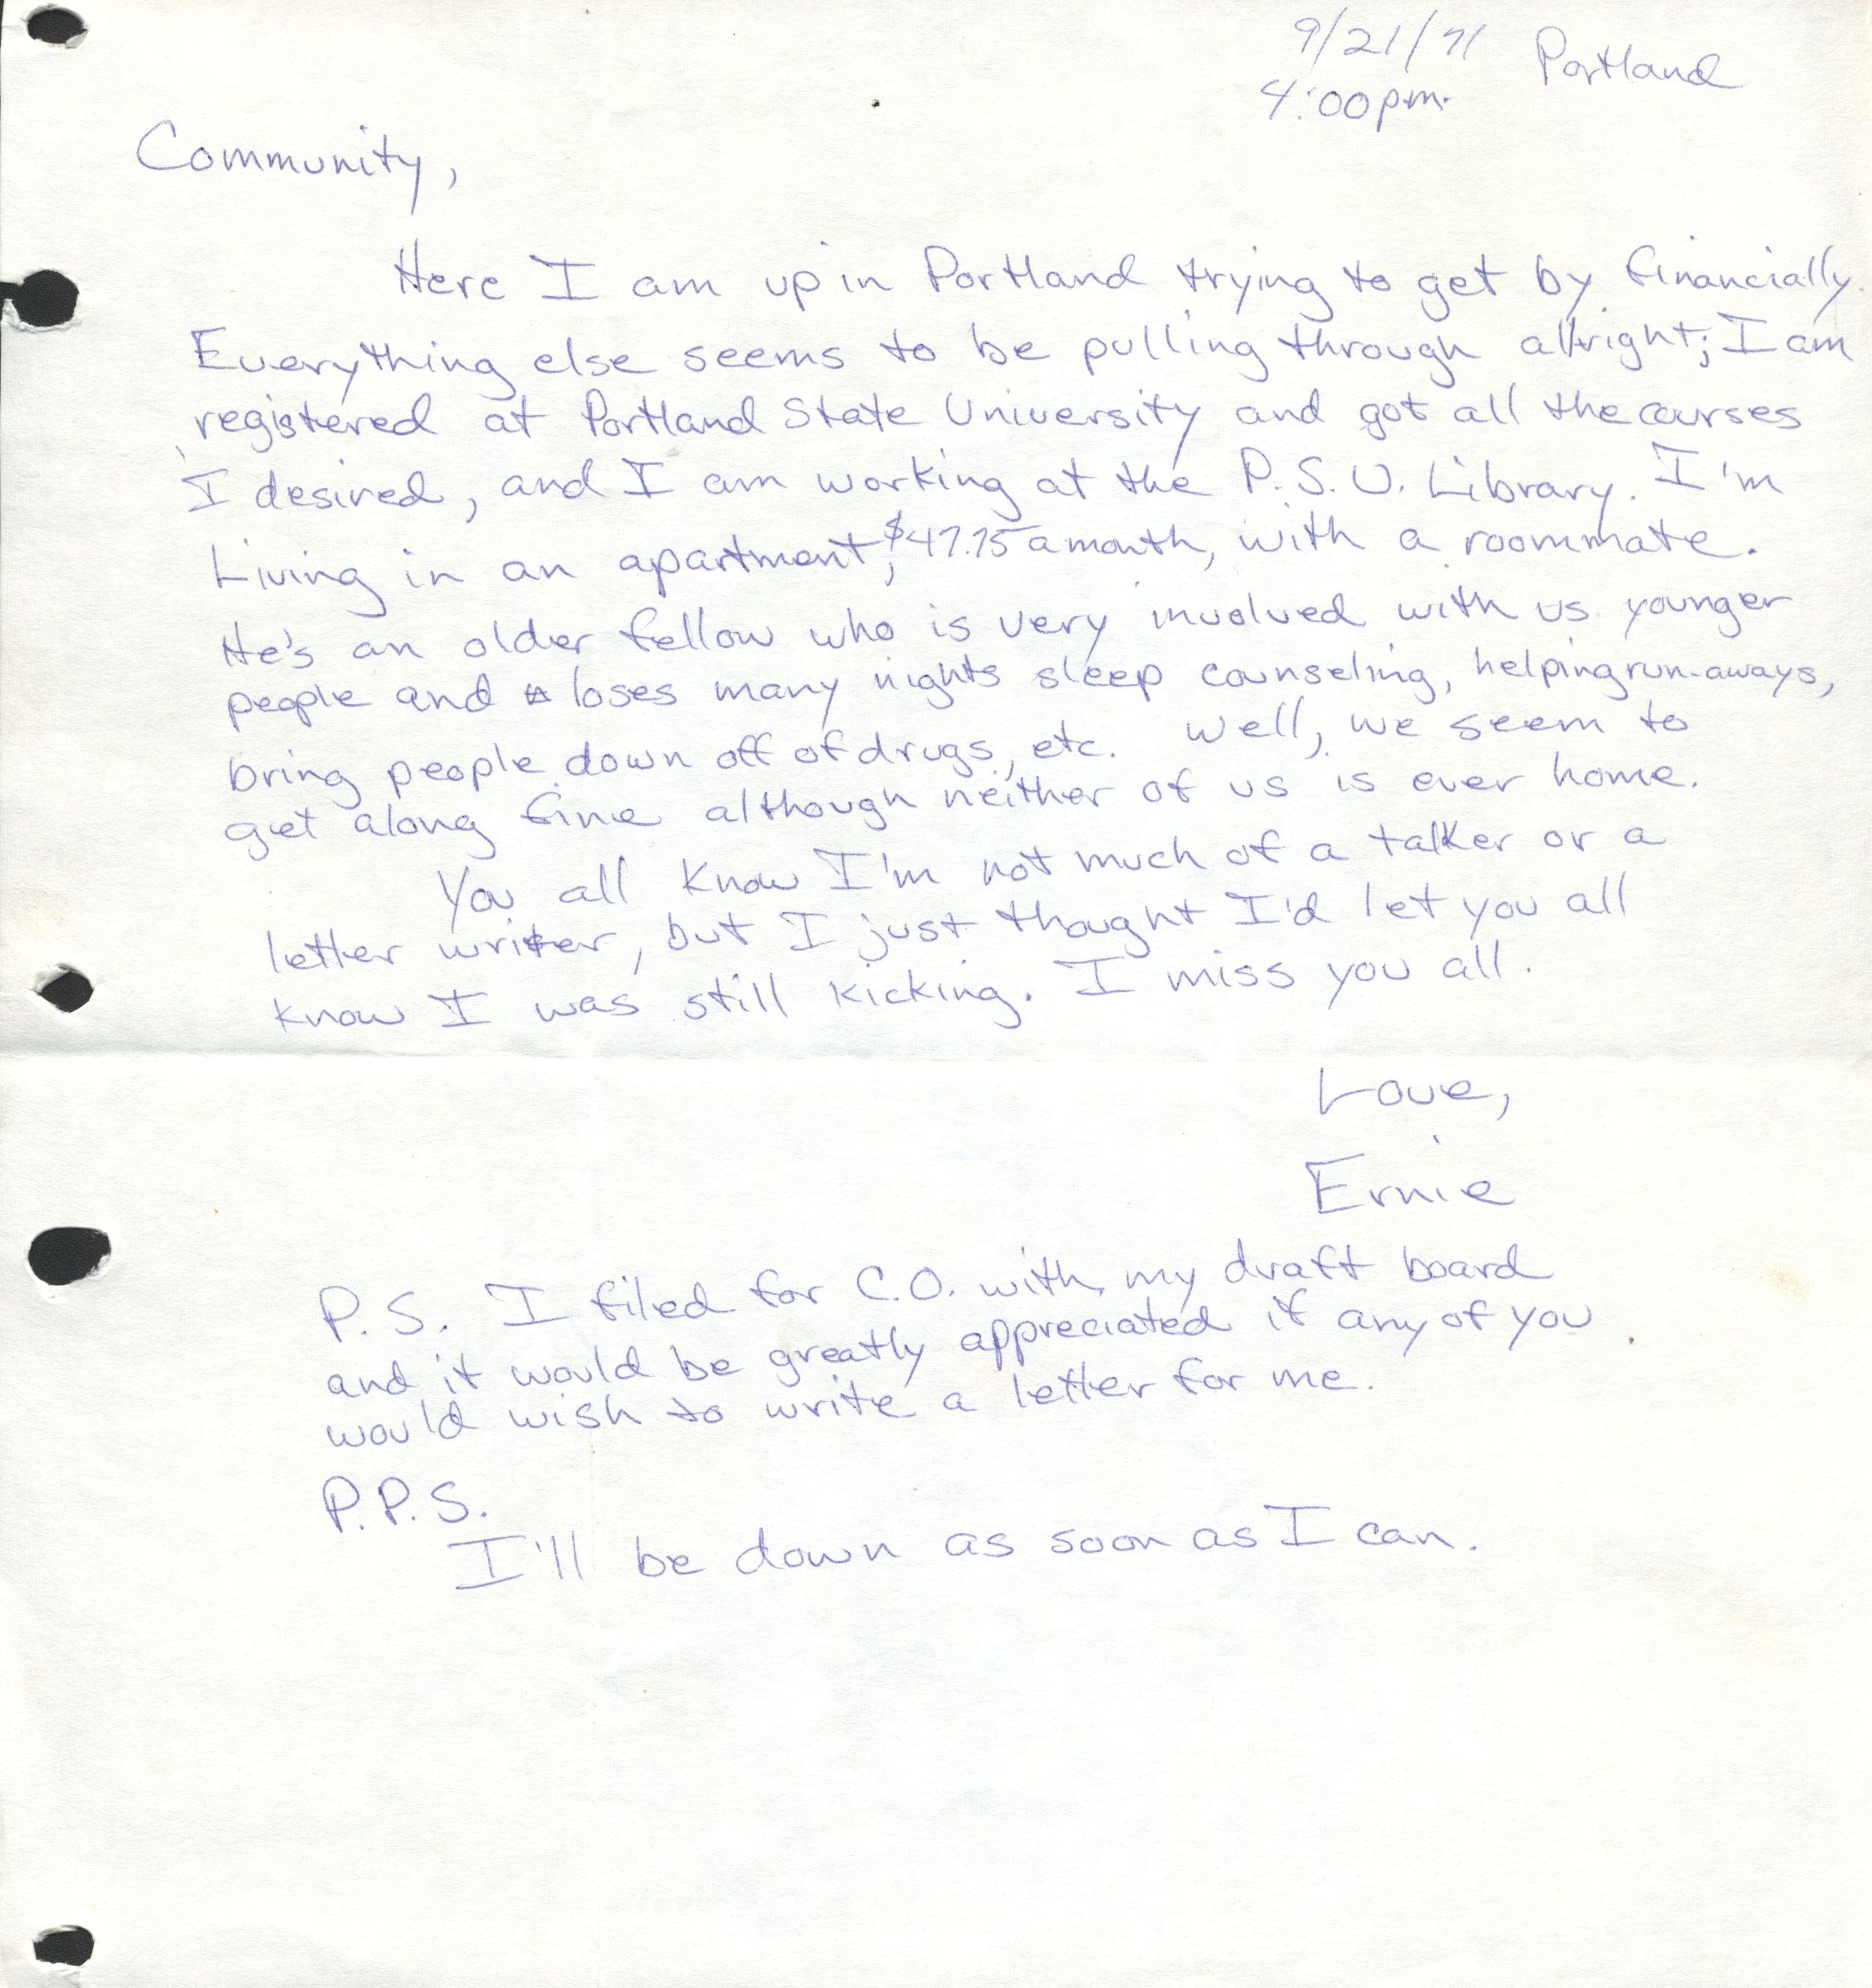 9/21/71 Portland
4:00 p.m.
Community,
Here I am up in Portland trying to get by financially.
Everything else seems to be pulling through allright; I am
registered at Portland State University and got all the courses
I desired, and I am working at the P.S.U. Library. I'm
Living in an apartment, $47.75 a month, with a roommate.
He's an older fellow who is very involved with us younger
people and loses many nights sleep counseling, helping run-aways,
bring people down off of drugs, etc. Well, we seem to
get along fine although neither of us is ever home.
You all know I'm not much of a talker or a
letter writer, but I just thought I'd let you all
know I was still kicking. I miss you all.
Love,
Ernie
P.S. I filed for C.O. with my draft board
and it would be greatly appreciated if any of you
would wish to write a letter for me.
P.P.S.
I'll be down as soon as I can.